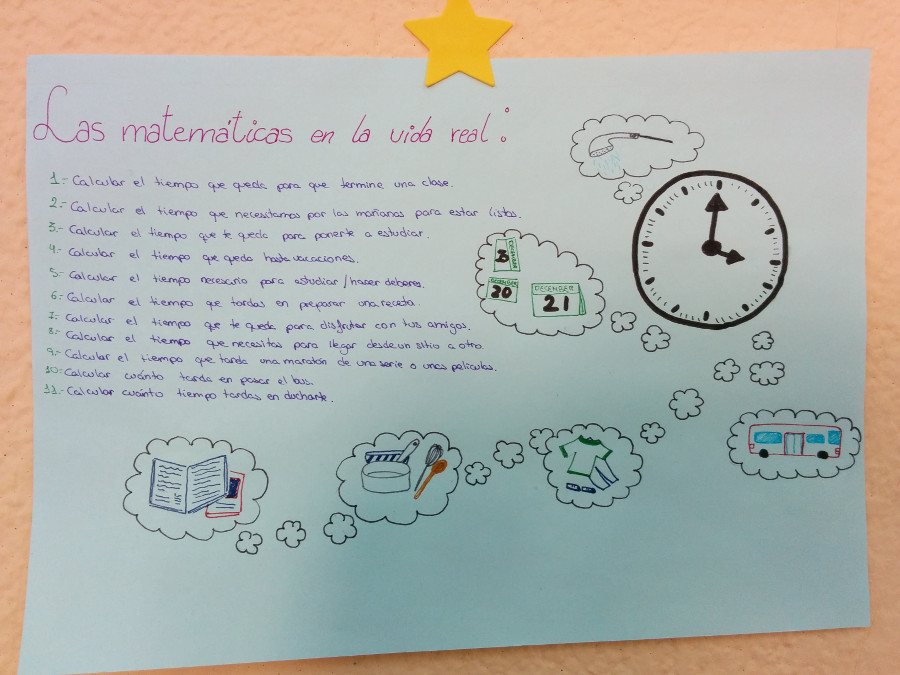 Las matemáticas en la vida real:
1.- Calcular el tiempo que queda para que termine una clase.
2.- Calcular el tiempo que necesitamos por las mañanas para estar listos.
3.- Calcular el tiempo que te queda para ponerte a estudiar.
4.- Calcular el tiempo que queda hasta vacaciones.
5.- Calcular el tiempo necesario para estudiar/hacer deberes.
6.- Calcular el tiempo que tardas en preparar una receta.
7.- Calcular el tiempo que te queda para disfrutar con tus amigos.
8.- Calcular el tiempo que necesitas para llegar desde un sitio a otro.
9.- Calcular el tiempo que tarda una maratón de una serie o unas películas.
10.- Calcular cuánto tarda en pasar el bus.
11.- Calcular cuánto tiempo tardas en ducharte.
3
DECEMBER
20
DECEMBER
21